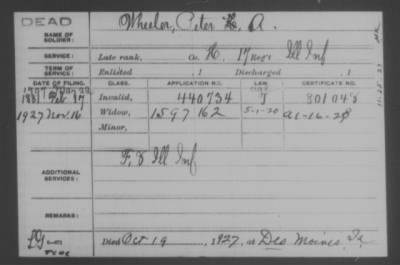 DEAD
NAME OF SOLDIER:
Wheeler, Peter A.
SERVICE:
Late rank, Co. K, 17 Reg't Ill Inf
TERM OF SERVICE:
Enlisted , 1 Discharged , 1
DATE OF FILING. CLASS. APPLICATION NO. LAW. CERTIFICATE NO.
1881 Feb 17 Invalid, 440734 J 801048
1927 Nov. 16 Widow, 1597162 5-1-20 a1-16-28
Minor,
ADDITIONAL SERVICES:
F. 8 Ill Inf
REMARKS:
Died Oct 19, 1927, at Des Moines, Ia